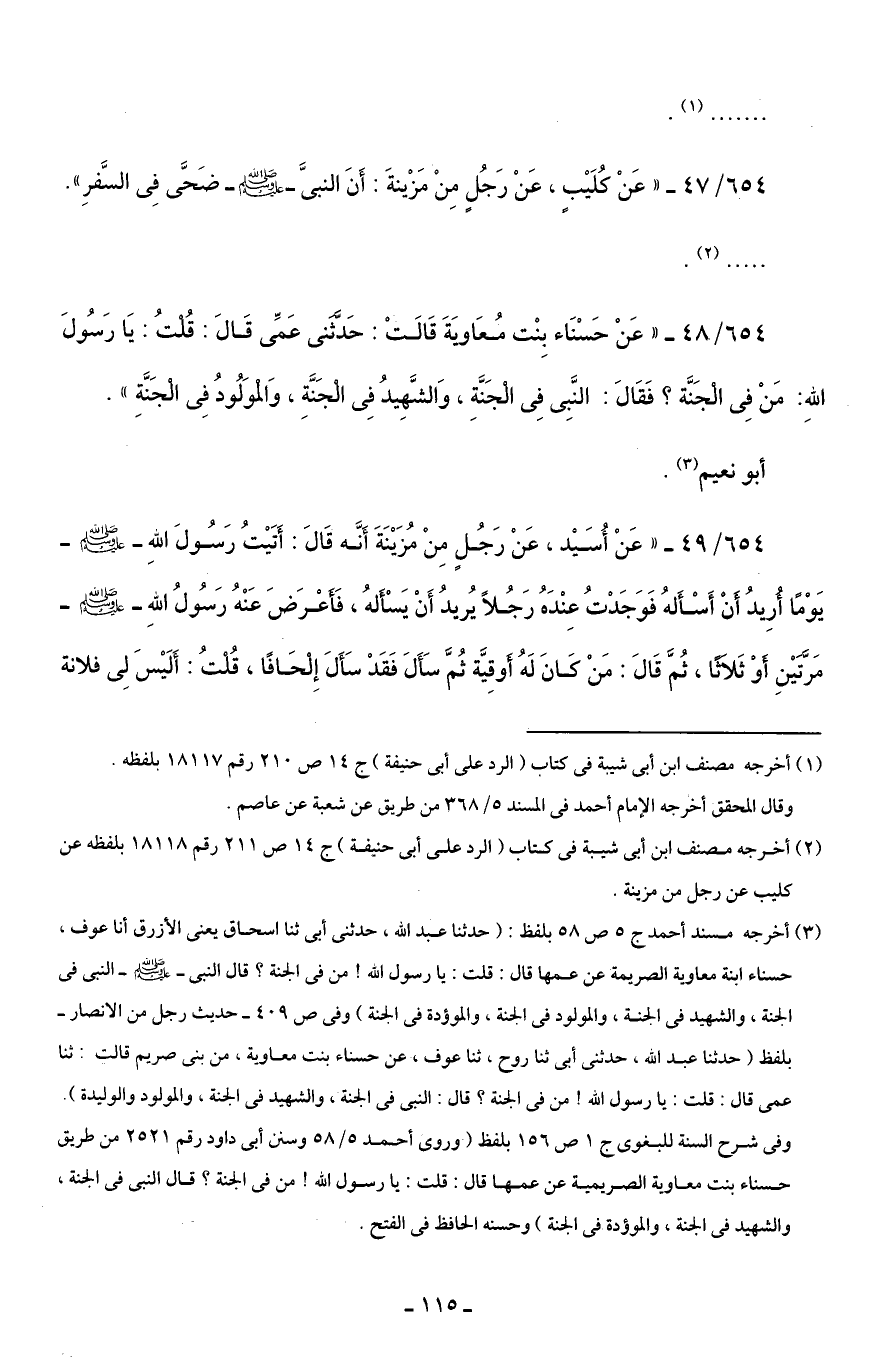 ....... (١) .
٤٧/٦٥٤ ـ « عَنْ كُلَيْبٍ ، عَنْ رَجُلٍ مِنْ مَزْينةَ : أَنَ النبىَّ ـ ﷺ ـ ضَحَّى فِى السَّفَرِ ».
..... (٢) .
٤٨/٦٥٤ ـ « عَنْ حَسْنَاء بِنْت مُعَاوِيَةَ قَالَتْ : حَدَّثَنى عَمِّى قَالَ : قُلْتُ : يَا رَسُولَ
اللهِ: مَنْ فِى الْجَنَّة ؟ فَقَالَ : النَّبِى فِى الْجَنَّةِ ، وَالشَّهِيدُ فِى الْجَنَّةِ ، وَالمْولُودُ فِى الْجَنَّةِ » .
أبو نعيم(٣) .
٤٩/٦٥٤ ـ « عَنْ أُسَيْد ، عَنْ رَجُلٍ مِنْ مُزَيْنَةَ أَنَّه قَالَ : أَتَيْتُ رَسُولَ اللهِ ـ ﷺ ـ
يَوْمًا أُرِيدُ أَنْ أَسْأَلهُ فَوَجَدْتُ عِنْدَهُ رَجُلاً يُرِيدُ أَنْ يَسْأَلهُ ، فَأَعْرَضَ عَنْهُ رَسُولُ اللهِ ـ ﷺ ـ
مَرَّتَيْنِ أَوْ ثَلاَثًا ، ثُمَّ قَالَ : مَنْ كَانَ لَهُ أُوقيَّة ثُمَّ سأَلَ فَقَدْ سأَلَ إِلْحَافًا ، قُلْتُ : أَلَيْسَ لِى فلانة
(١) أخرجه مصنف ابن أبى شيبة فى كتاب ( الرد على أبى حنيفة ) ج ١٤ ص ٢١٠ رقم ١٨١١٧ بلفظه .
وقال المحقق أخرجه الإمام أحمد فى المسند ٥/ ٣٦٨ من طريق عن شعبة عن عاصم .
(٢) أخرجه مصنف ابن أبى شيبة فى كتاب ( الرد على أبى حنيفة ) ج ١٤ ص ٢١١ رقم ١٨١١٨ بلفظه عن
كليب عن رجل من مزينة .
(٣) أخرجه مسند أحمد ج ٥ ص ٥٨ بلفظ : ( حدثنا عبد الله ، حدثنى أبى ثنا اسحاق يعنى الأزرق أنا عوف ،
حسناء ابنة معاوية الصريمة عن عمها قال : قلت : يا رسول الله ! من فى الجنة ؟ قال النبى ـ ﷺ ـ النبى فى
الجنة ، والشهيد فى الجنة ، والمولود فى الجنة ، والموؤدة فى الجنة ) وفى ص ٤٠٩ ـ حديث رجل من الانصار ـ
بلفظ ( حدثنا عبد الله ، حدثنى أبى ثنا روح ، ثنا عوف ، عن حسناء بنت معاوية ، من بنى صريم قالت : ثنا
عمى قال : قلت : يا رسول الله ! من فى الجنة ؟ قال : النبى فى الجنة ، والشهيد فى الجنة ، والمولود والوليدة ).
وفى شرح السنة للبغوى ج ١ ص ١٥٦ بلفظ ( وروى أحمد ٥/ ٥٨ وسنن أبى داود رقم ٢٥٢١ من طريق
حسناء بنت معاوية الصريمية عن عمها قال : قلت : يا رسول الله ! من فى الجنة ؟ قال النبى فى الجنة ،
والشهيد فى الجنة ، والموؤدة فى الجنة ) وحسنه الحافظ فى الفتح .
ـ ١١٥ ـ